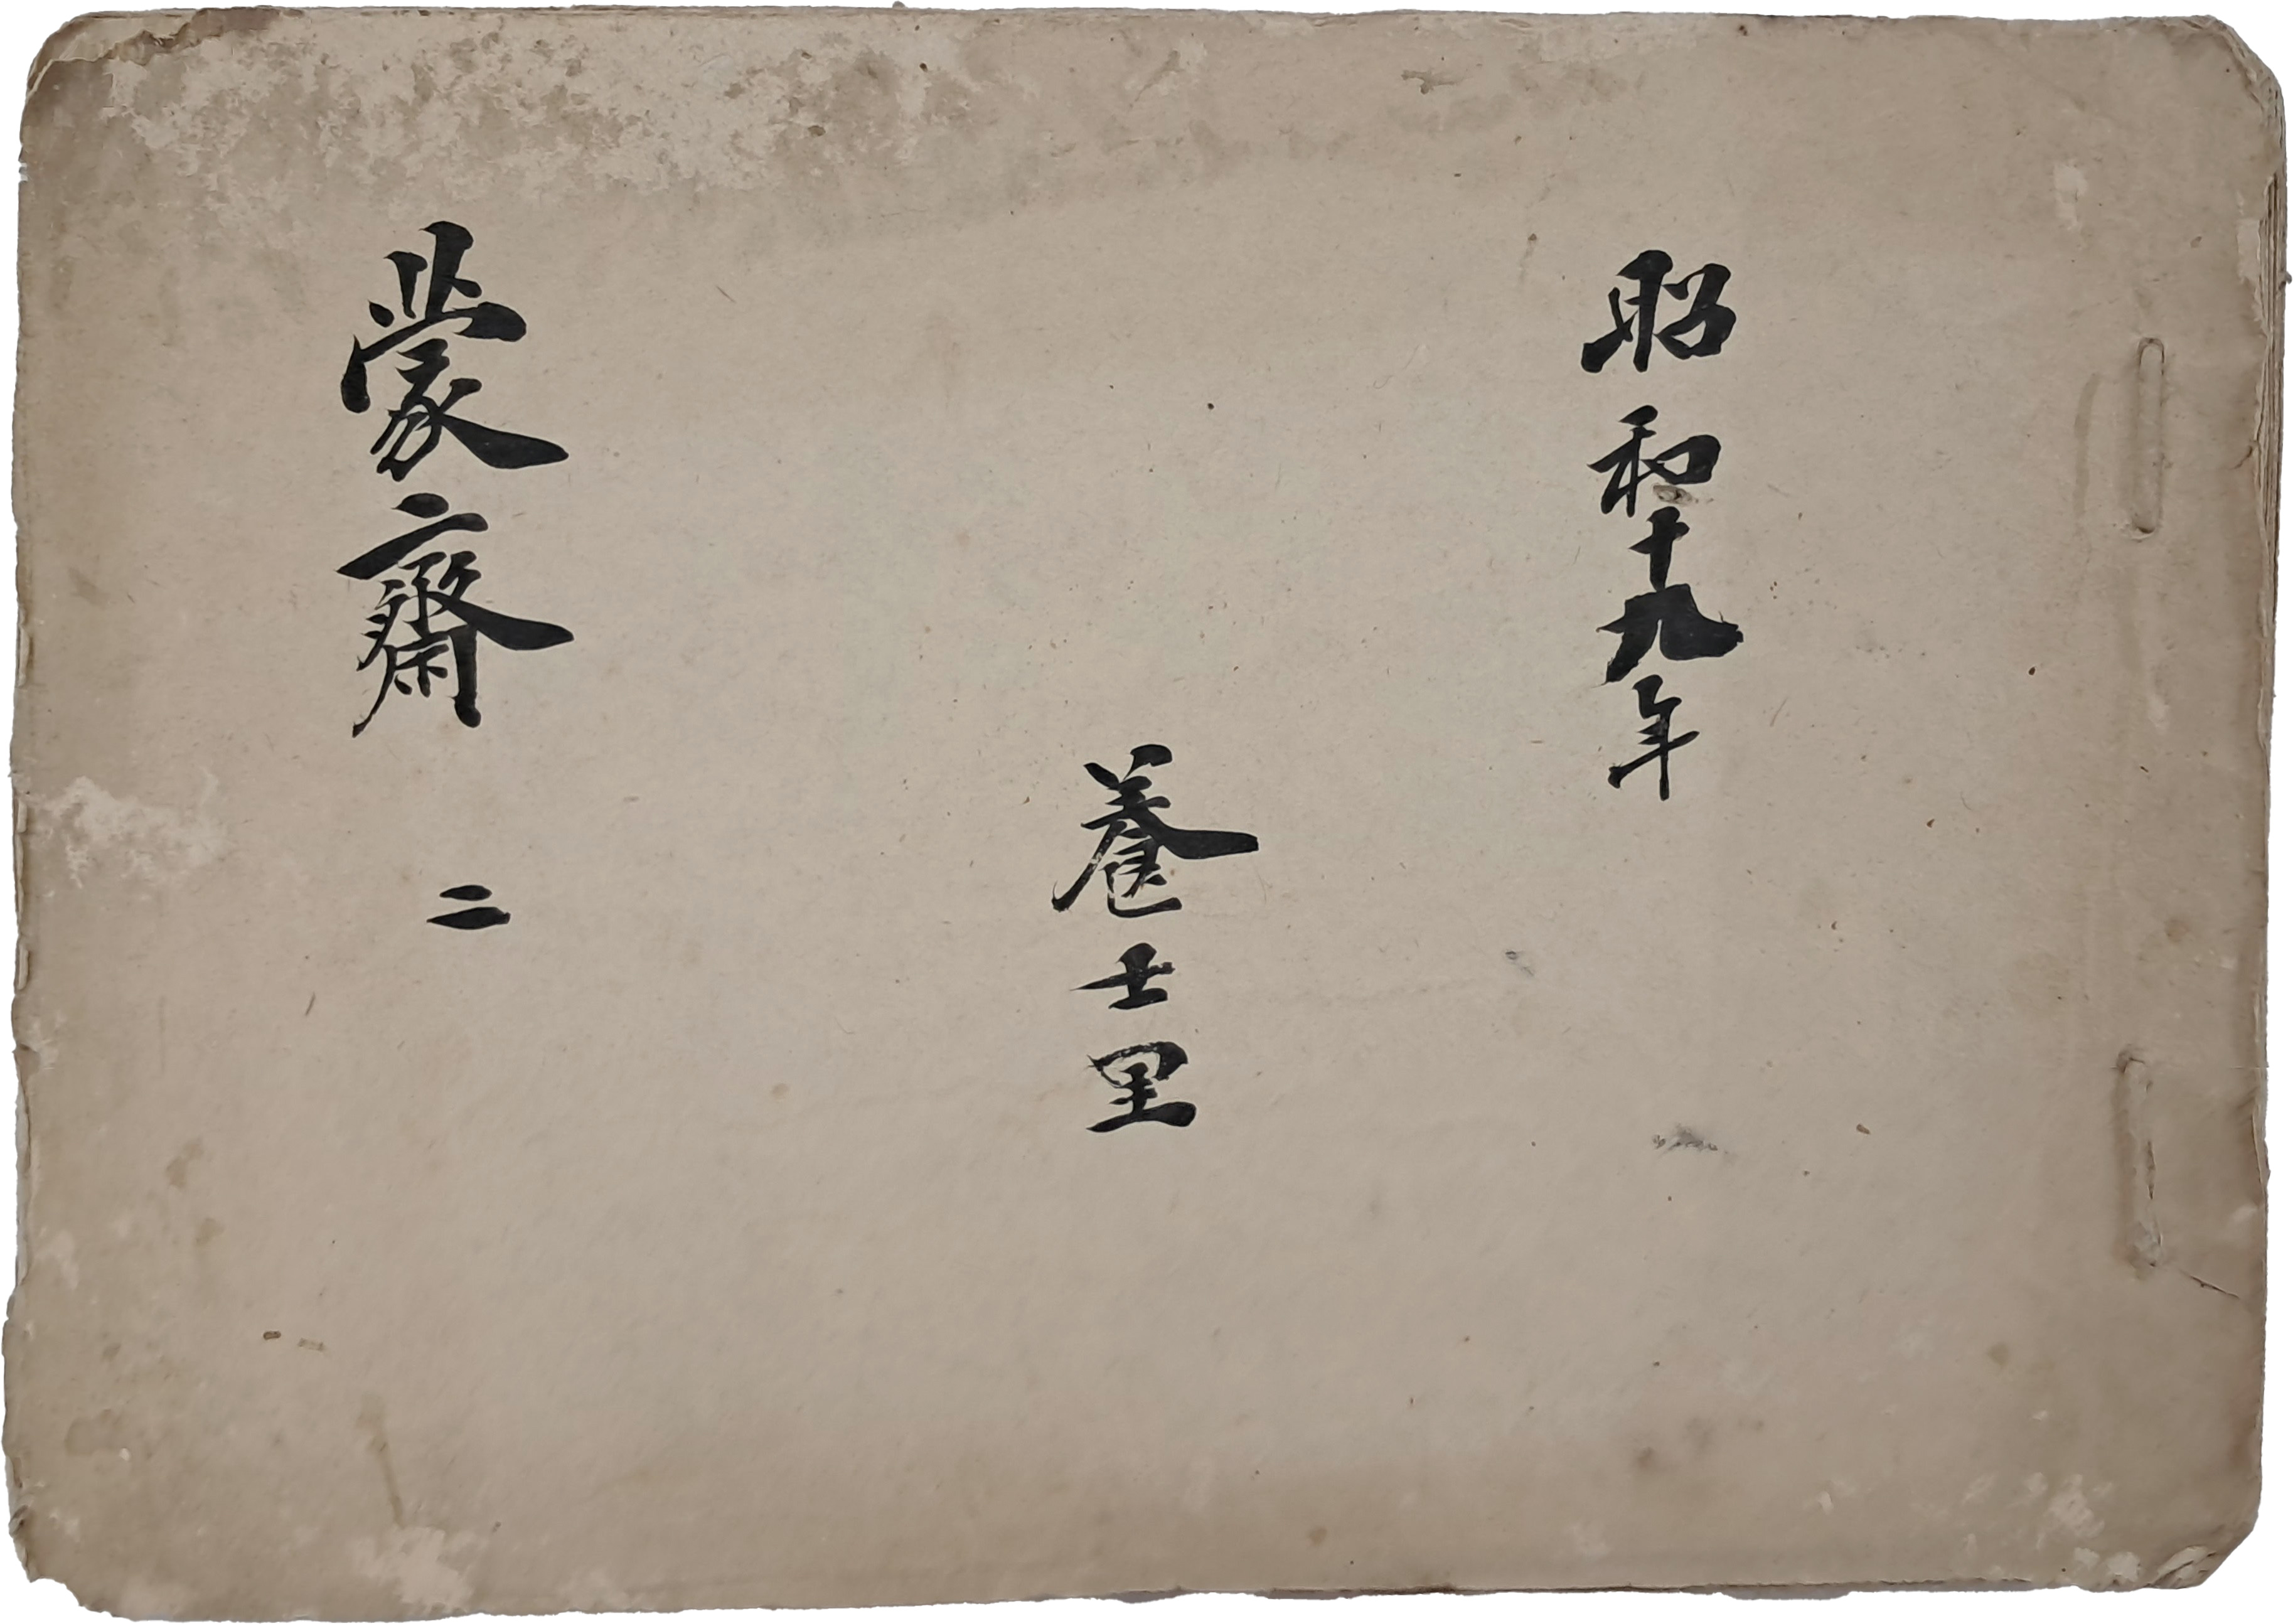 昭和十九年
養士里
蒙齋 二